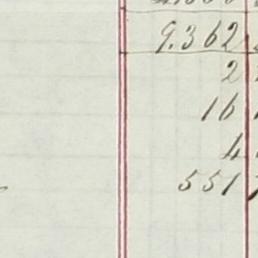 9.362
2
16
4
551